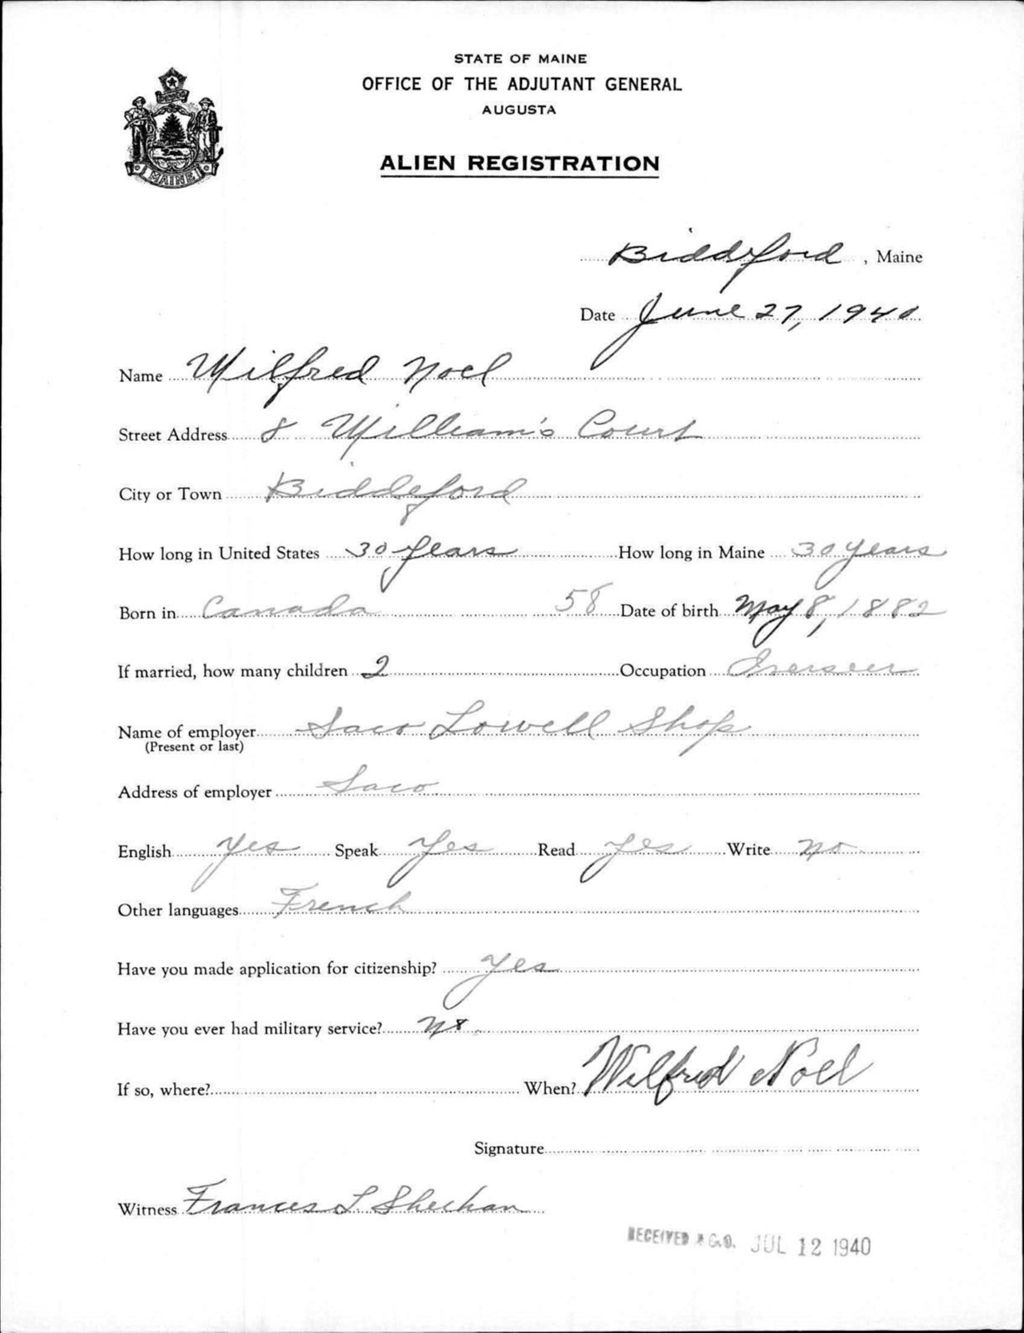 STATE OF MAINE
OFFICE OF THE ADJUTANT GENERAL
AUGUSTA
ALIEN REGISTRATION
MAINE
Biddeford, Maine
Date June 27, 1940
Name Wilfred Noel
Street Address 8 William's Court
City or Town Biddeford
How long in United States 30 years How long in Maine 30 years
Born in Canada 58 Date of birth May 8, 1882
If married, how many children 2 Occupation Overseer
Name of employer Saco Lowell Shop
(Present or last)
Address of employer Saco
English Yes Speak Yes Read Yes Write No
Other languages French
Have you made application for citizenship? Yes
Have you ever had military service? No
If so, where? When? Wilfred Noel
Signature
Witness Frances L Sheehan
RECEIVED A.G.O. JUL 12 1940